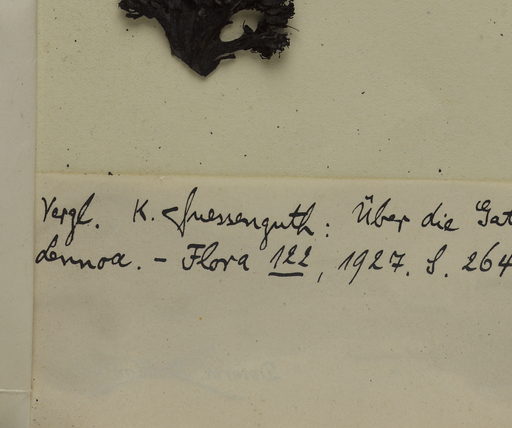 Vergl. K. Suessenguth: Über die Gat
Lennoa. - Flora 122, 1927. S. 264